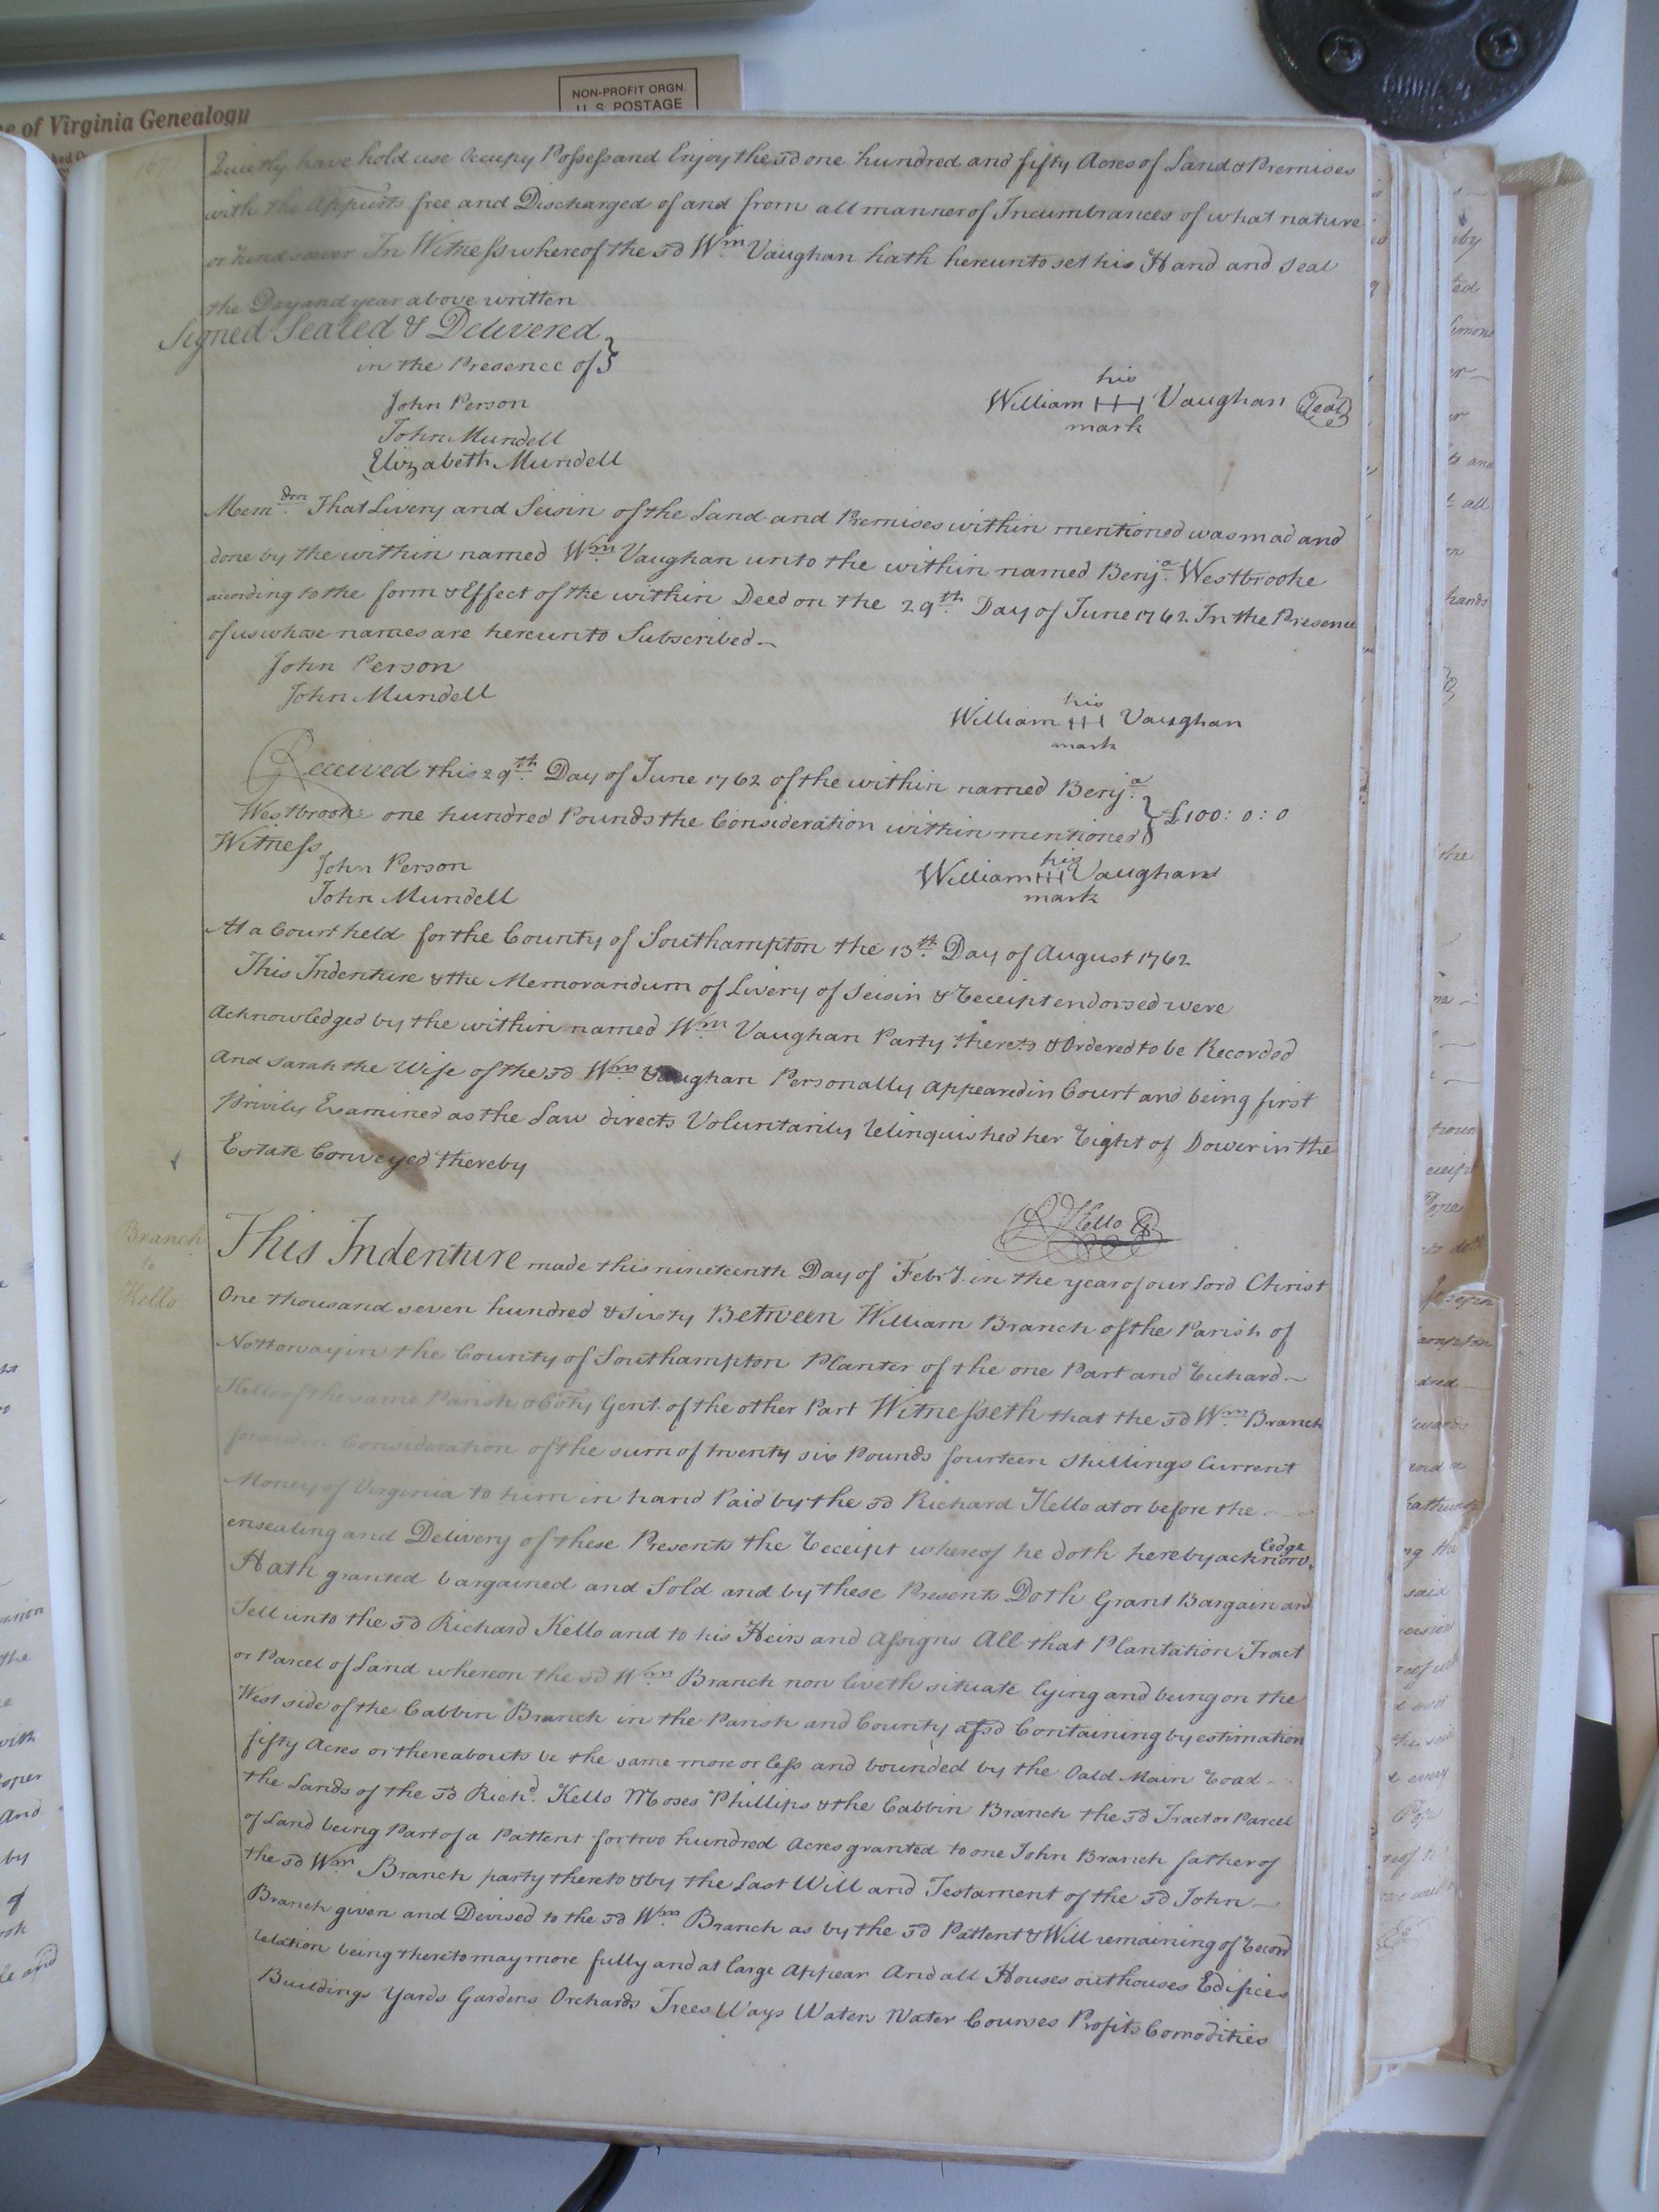 of Virginia Genealogy
NON-PROFIT ORGN.
U.S. POSTAGE
Quietly have hold use Occupy Possess and Enjoy the sd one hundred and fifty Acres of Land & Premises
with the Appurts free and Discharged of and from all manner of Incumbrances of what nature
or kind soever In Witness whereof the sd Wm. Vaughan hath hereunto set his Hand and Seal
the Day and year above written
Signed Sealed & Delivered
in the Presence of
John Person
his
William HH Vaughan Seal
mark
John Mundell
Elizabeth Mundell
Memdm. That Livery and Seisin of the Land and Premises within mentioned was mad and
done by the within named Wm. Vaughan unto the within named Benja. Westbrooke
according to the form & Effect of the within Deed on the 29th. Day of June 1762 In the Presence
of us whose names are hereunto Subscribed
John Person
John Mundell
his
William HH Vaughan
mark
Received this 29th. Day of June 1762 of the within named Benja.
Westbrook one hundred Pounds the Consideration within mentioned £100:0:0
Witness
John Person
his
William HH Vaughan
mark
John Mundell
At a Court held for the County of Southampton the 13th. Day of August 1762
This Indenture & the Memorandum of Livery of Seisin & Receipt endorsed were
Acknowledged by the within named Wm. Vaughan Party thereto & Ordered to be Recorded
And Sarah the Wife of the sd Wm. Vaughan Personally appeared in Court and being first
Privily Examined as the Law directs Voluntarily relinquished her Right of Dower in the
Estate Conveyed thereby
R Kello
Branch
to
Kello
This Indenture made this nineteenth Day of Febry. in the year of our Lord Christ
One thousand seven hundred & Sixty Between William Branch of the Parish of
Nottoway in the County of Southampton Planter of the one Part and Richard
Kello of the same Parish & Coty Gent. of the other Part Witnesseth that the sd Wm. Branch
for & in Consideration of the sum of twenty six Pounds fourteen Shillings Current
Money of Virginia to him in hand Paid by the sd Richard Kello at or before the
ensealing and Delivery of these Presents the Receipt whereof he doth hereby acknowledge
Hath granted bargained and Sold and by these Presents Doth Grant Bargain and
Sell unto the sd Richard Kello and to his Heirs and Assigns All that Plantation Tract
or Parcel of Land whereon the sd Wm. Branch now liveth situate lying and being on the
West side of the Cabbin Branch in the Parish and County afsd Containing by estimation
fifty Acres or thereabouts be the same more or less and bounded by the Oald Main Road
the Lands of the sd Richd. Kello Moses Phillips & the Cabbin Branch the sd Tract or Parcel
of Land being Part of a Pattent for two hundred Acres granted to one John Branch father of
the sd Wm. Branch party thereto & by the Last Will and Testament of the sd John
Branch given and Devised to the sd Wm. Branch as by the sd Pattent & Will remaining of Record
relation being thereto may more fully and at large Appear And all Houses outhouses Edifices
Buildings Yards Gardens Orchards Trees Ways Waters Water Courses Profits Comodities